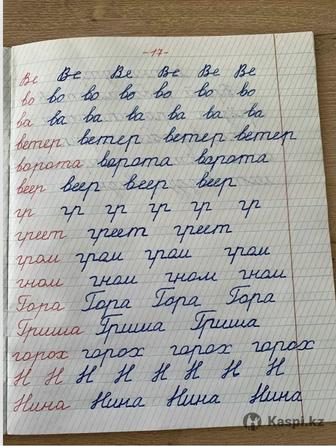 -17-
Ве Ве Ве Ве Ве Ве
во во во во во во во
ва ва ва ва ва ва ва
ветер ветер ветер ветер
ворота ворота ворота
веер веер веер веер
гр гр гр гр гр гр
греет греет греет
грам грам грам грам
гном гном гном гном
Гора Гора Гора Гора
Гриша Гриша Гриша
горох горох горох горох
Н Н Н Н Н Н Н Н
Нина Нина Нина Нина
Kaspi.kz